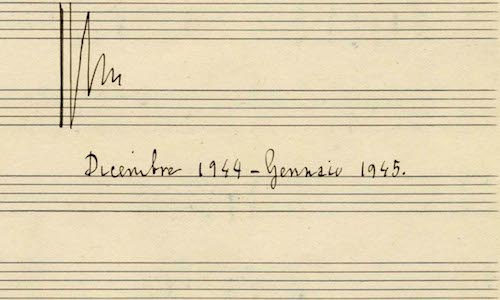 Dicembre 1944 - Gennaio 1945.